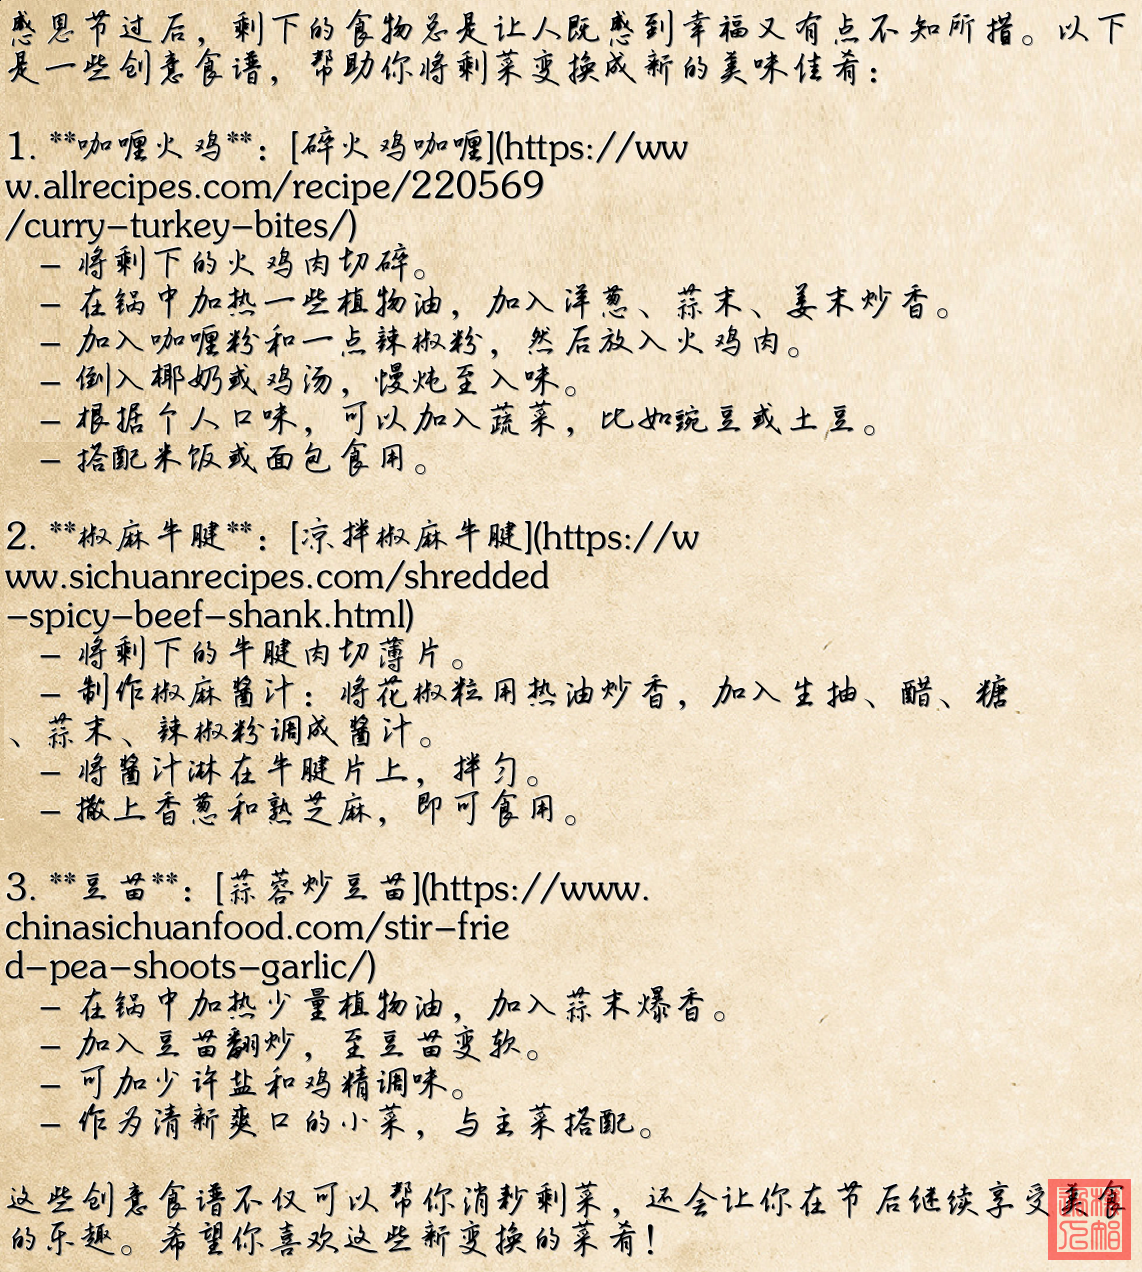 感恩节过后，剩下的食物总是让人既感到幸福又有点不知所措。以下
是一些创意食谱，帮助你将剩菜变换成新的美味佳肴：
1. **咖喱火鸡**：[碎火鸡咖喱](https://ww
w.allrecipes.com/recipe/220569
/curry-turkey-bites/)
- 将剩下的火鸡肉切碎。
- 在锅中加热一些植物油，加入洋葱、蒜末、姜末炒香。
- 加入咖喱粉和一点辣椒粉，然后放入火鸡肉。
- 倒入椰奶或鸡汤，慢炖至入味。
- 根据个人口味，可以加入蔬菜，比如豌豆或土豆。
- 搭配米饭或面包食用。
2. **椒麻牛腱**：[凉拌椒麻牛腱](https://w
ww.sichuanrecipes.com/shredded
-spicy-beef-shank.html)
- 将剩下的牛腱肉切薄片。
- 制作椒麻酱汁：将花椒粒用热油炒香，加入生抽、醋、糖
、蒜末、辣椒粉调成酱汁。
- 将酱汁淋在牛腱片上，拌匀。
- 撒上香葱和熟芝麻，即可食用。
3. **豆苗**：[蒜蓉炒豆苗](https://www.
chinasichuanfood.com/stir-frie
d-pea-shoots-garlic/)
- 在锅中加热少量植物油，加入蒜末爆香。
- 加入豆苗翻炒，至豆苗变软。
- 可加少许盐和鸡精调味。
- 作为清新爽口的小菜，与主菜搭配。
这些创意食谱不仅可以帮你消耗剩菜，还会让你在节后继续享受美食
的乐趣。希望你喜欢这些新变换的菜肴！